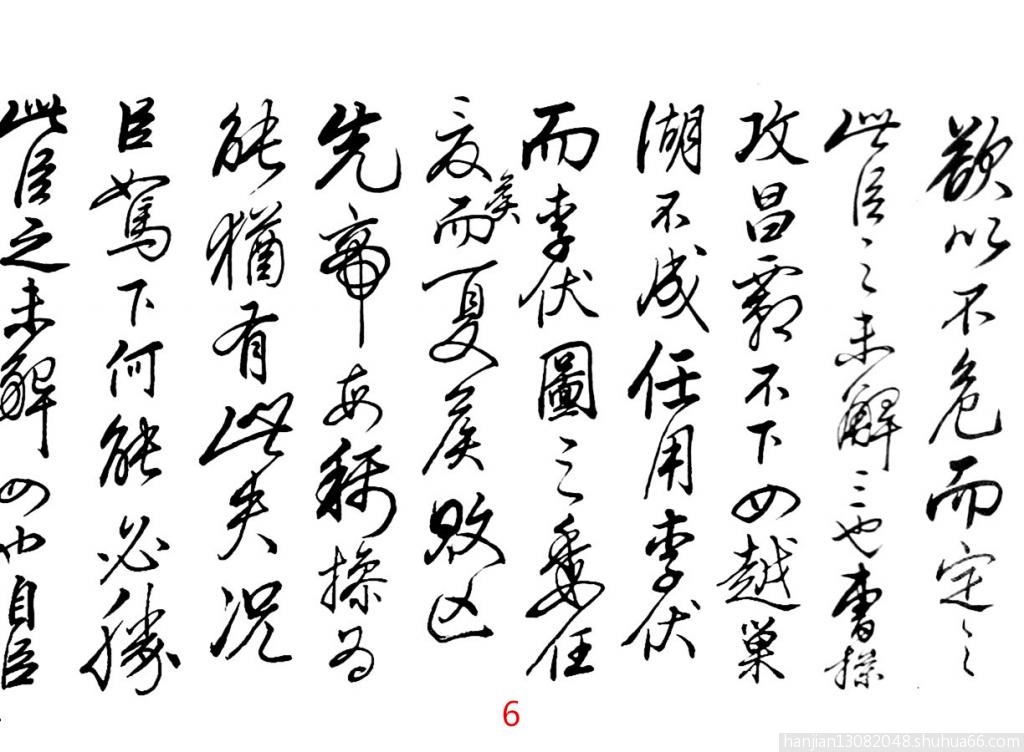 欲以不危而定之
此臣之未解三也曹操
攻昌霸不下四越巢
湖不成任用李伏
而李伏圖之委任
夏侯而夏侯敗亡
先帝每稱操為
能猶有此失況
臣駑下何能必勝
此臣之未解四也自臣
6
hanjian13082048.shuhua66.com